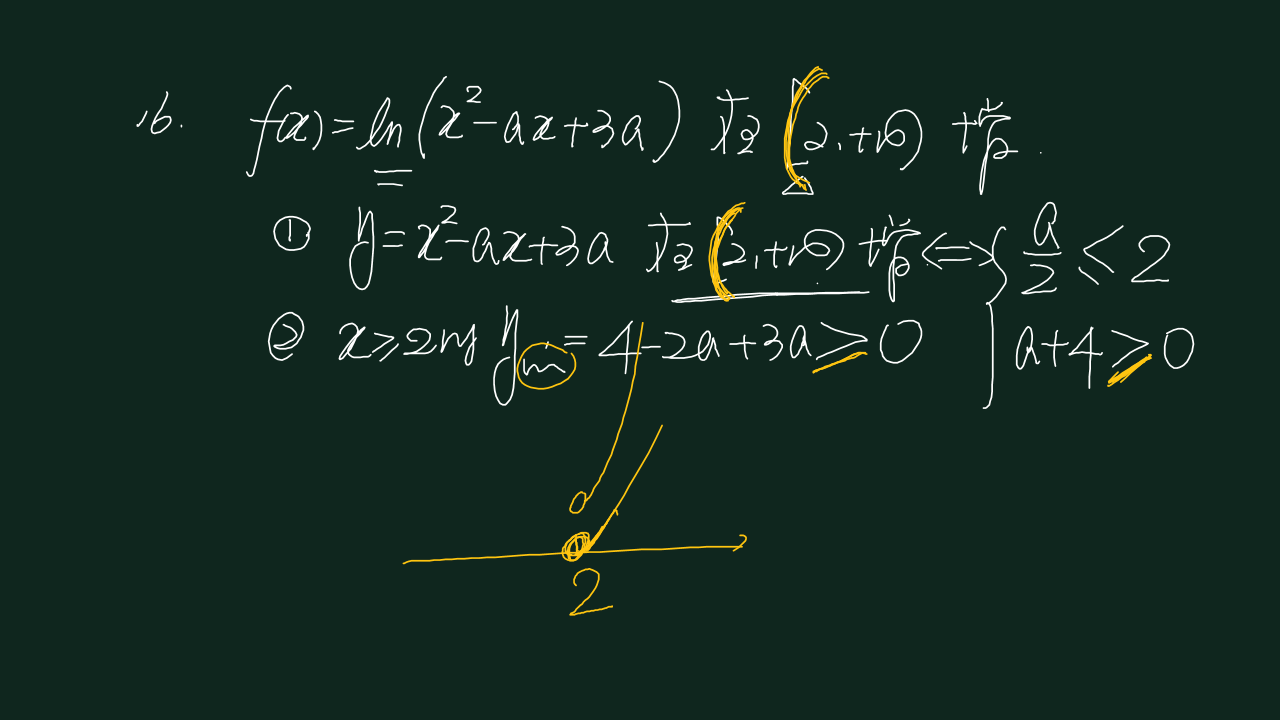 16. f(x)=ln(x²-ax+3a) 在(2,+∞)上↑.
① y=x²-ax+3a 在(2,+∞)上↑ ⇔ { a/2 ≤ 2
② x≥2时 yₘ = 4-2a+3a ≥ 0 a+4 ≥ 0
2